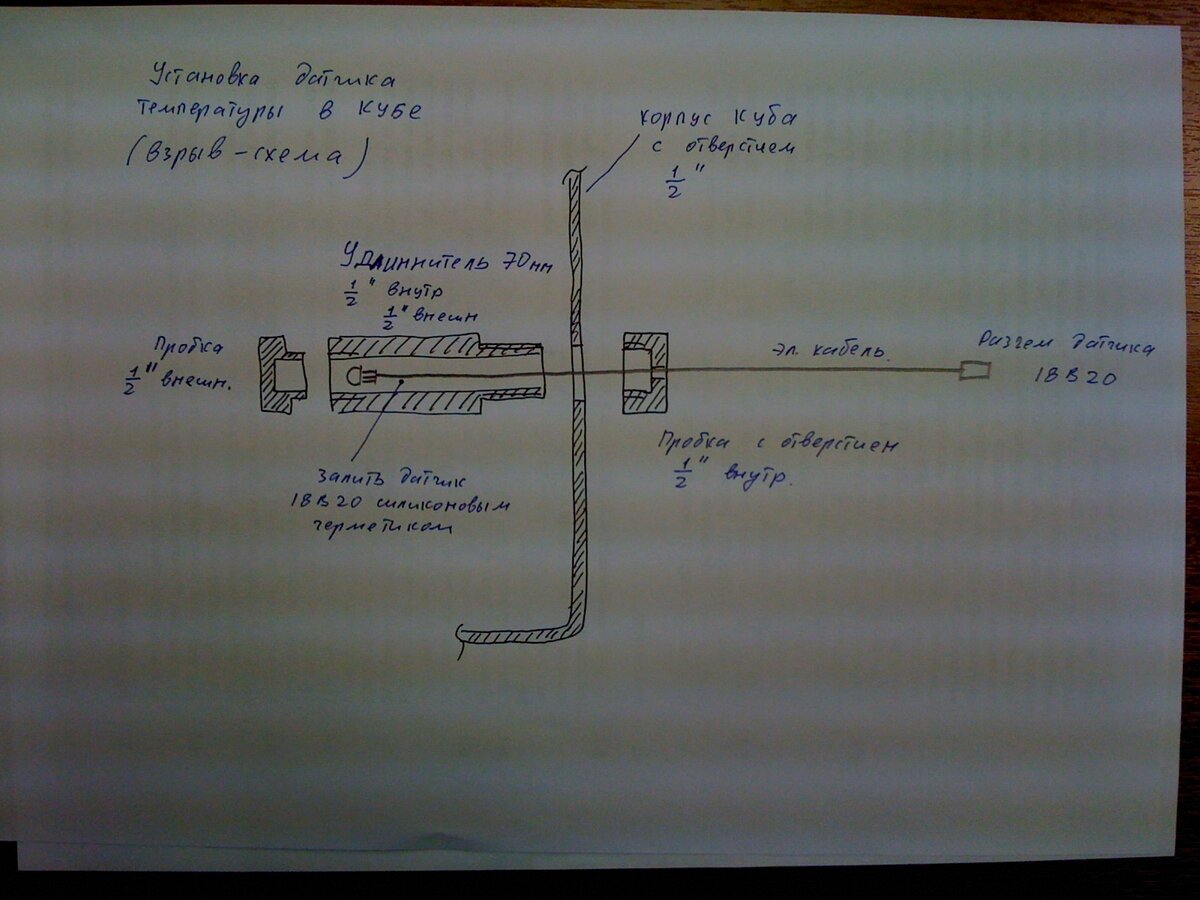 Установка датчика
температуры в кубе
(взрыв-схема)
корпус куба
с отверстием
1/2"
Удлиннитель 70мм
1/2" внутр
1/2" внешн
Пробка
1/2" внешн.
Эл. кабель.
Разъем датчика
18B20
Пробка с отверстием
1/2" внутр.
Залить датчик
18B20 силиконовым
герметиком